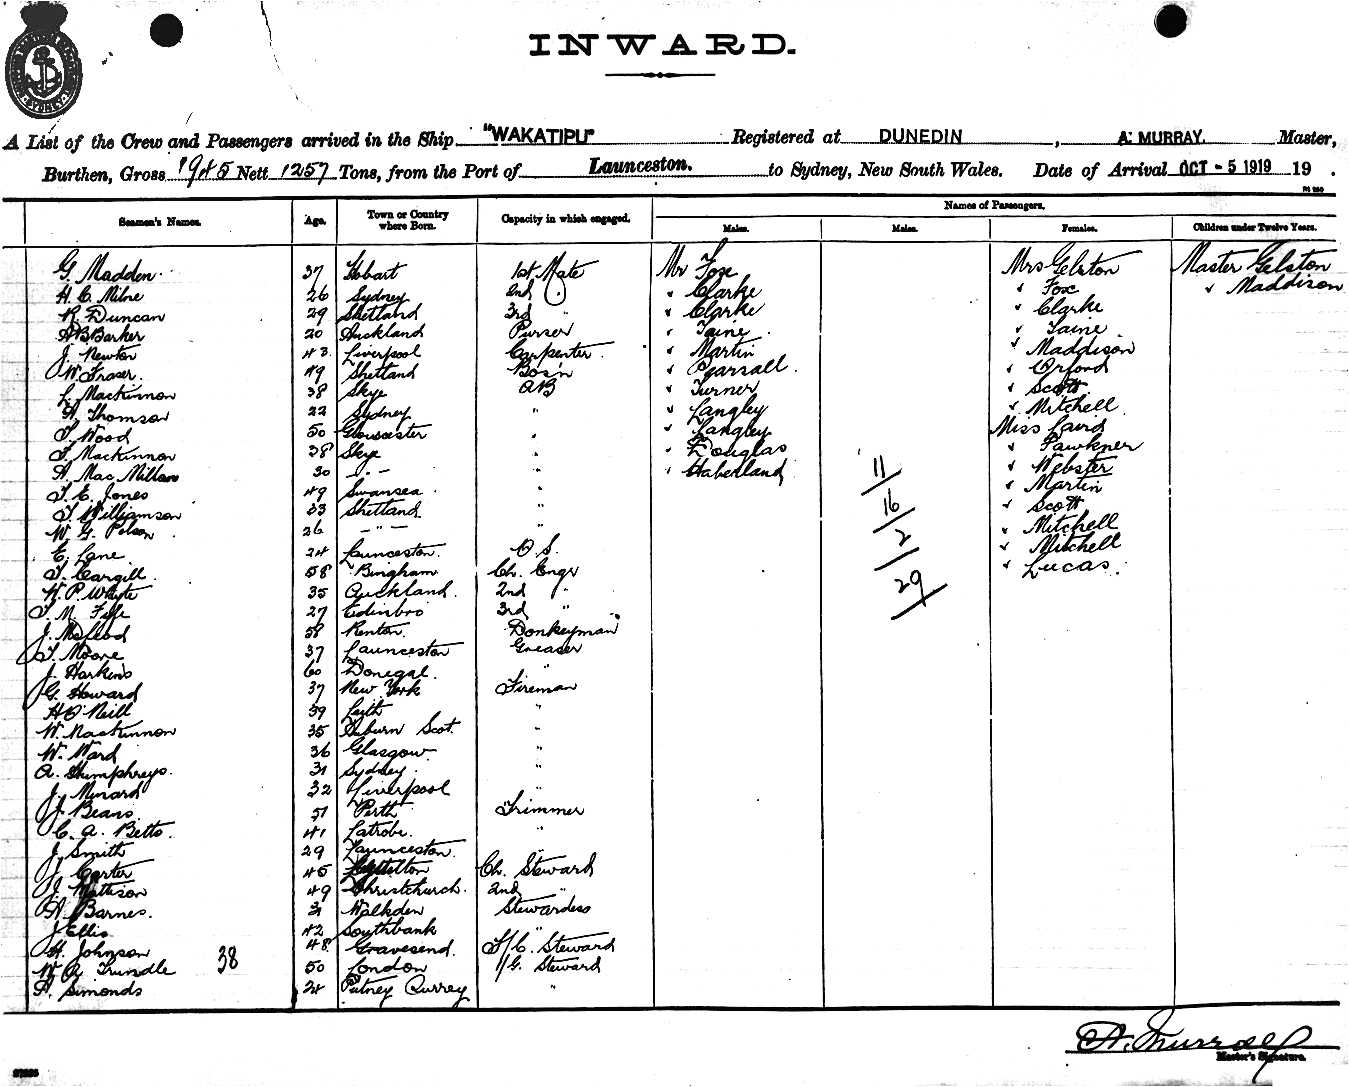 INWARD.
A List of the Crew and Passengers arrived in the Ship "WAKATIPU" Registered at DUNEDIN, A. MURRAY. Master,
Burthen, Gross 1945 Nett 1257 Tons, from the Port of Launceston. to Sydney, New South Wales. Date of Arrival OCT - 5 1919 19 .
Seamen's Names. Age. Town or Country where Born. Capacity in which engaged. Names of Passengers.
Males. Males. Females. Children under Twelve Years.
G. Madden. 37 Hobart 1st Mate Mr Fox Mrs Gelston Master Gelston
H. C. Milne 26 Sydney 2nd " Clarke " Fox " Maddison
R. Duncan 29 Shetland 3rd " " Clarke " Clarke
A B Barker 20 Auckland Purser " Taine " Taine
J. Newton 43 Liverpool Carpenter " Martin " Maddison
W. Fraser. 49 Shetland Bos'n " Pearsall " Orford
L. Mackinnon 38 Skye AB " Turner " Scott
A. Thomson 22 Sydney " " Langley " Mitchell
T. Wood 50 Gloucester " " Langley Miss Laird
T. Mackinnon 38 Skye " " Douglas " Pawkner
A. Mac Millan 30 - " - " " Haberland 11 " Webster
T. E. Jones 49 Swansea " " Martin
T. Williamson 33 Shetland " 16 " Scott
W. G. Polson 26 - " - " 2 " Mitchell
E. Lane 24 Launceston. O. S. " Mitchell
T. Cargill. 58 Bingham Ch. Engr 29 " Lucas.
W. P. Whyte 35 Auckland. 2nd "
T. M. Fife 27 Edinbro 3rd "
J. McLeod 58 Renton. Donkeyman
T. Moore 37 Launceston Greaser
J. Harkins 60 Donegal. "
G. Howard 37 New York Fireman
H O'Neill 39 Leith "
W. Mackinnon 35 Scot. "
W. Ward 36 Glasgow "
A. Humphreys. 31 Sydney. "
J. Minard 32 Liverpool "
J. Beans. 51 Perth Trimmer
C. A. Betts. 41 Latrobe. "
J. Smith 29 Launceston. "
J. Carter 45 Ch. Steward
J. Mattison 49 Christchurch. 2nd "
A. Barnes. 31 Walkden Stewardess
J Ellis 42 Southbank "
H. Johnson 48 Gravesend. F/C. Steward
W. A. Trundle 38 50 London 1/G. Steward
A. Simonds 24 Putney Surrey "
A. Murray
Master's Signature.